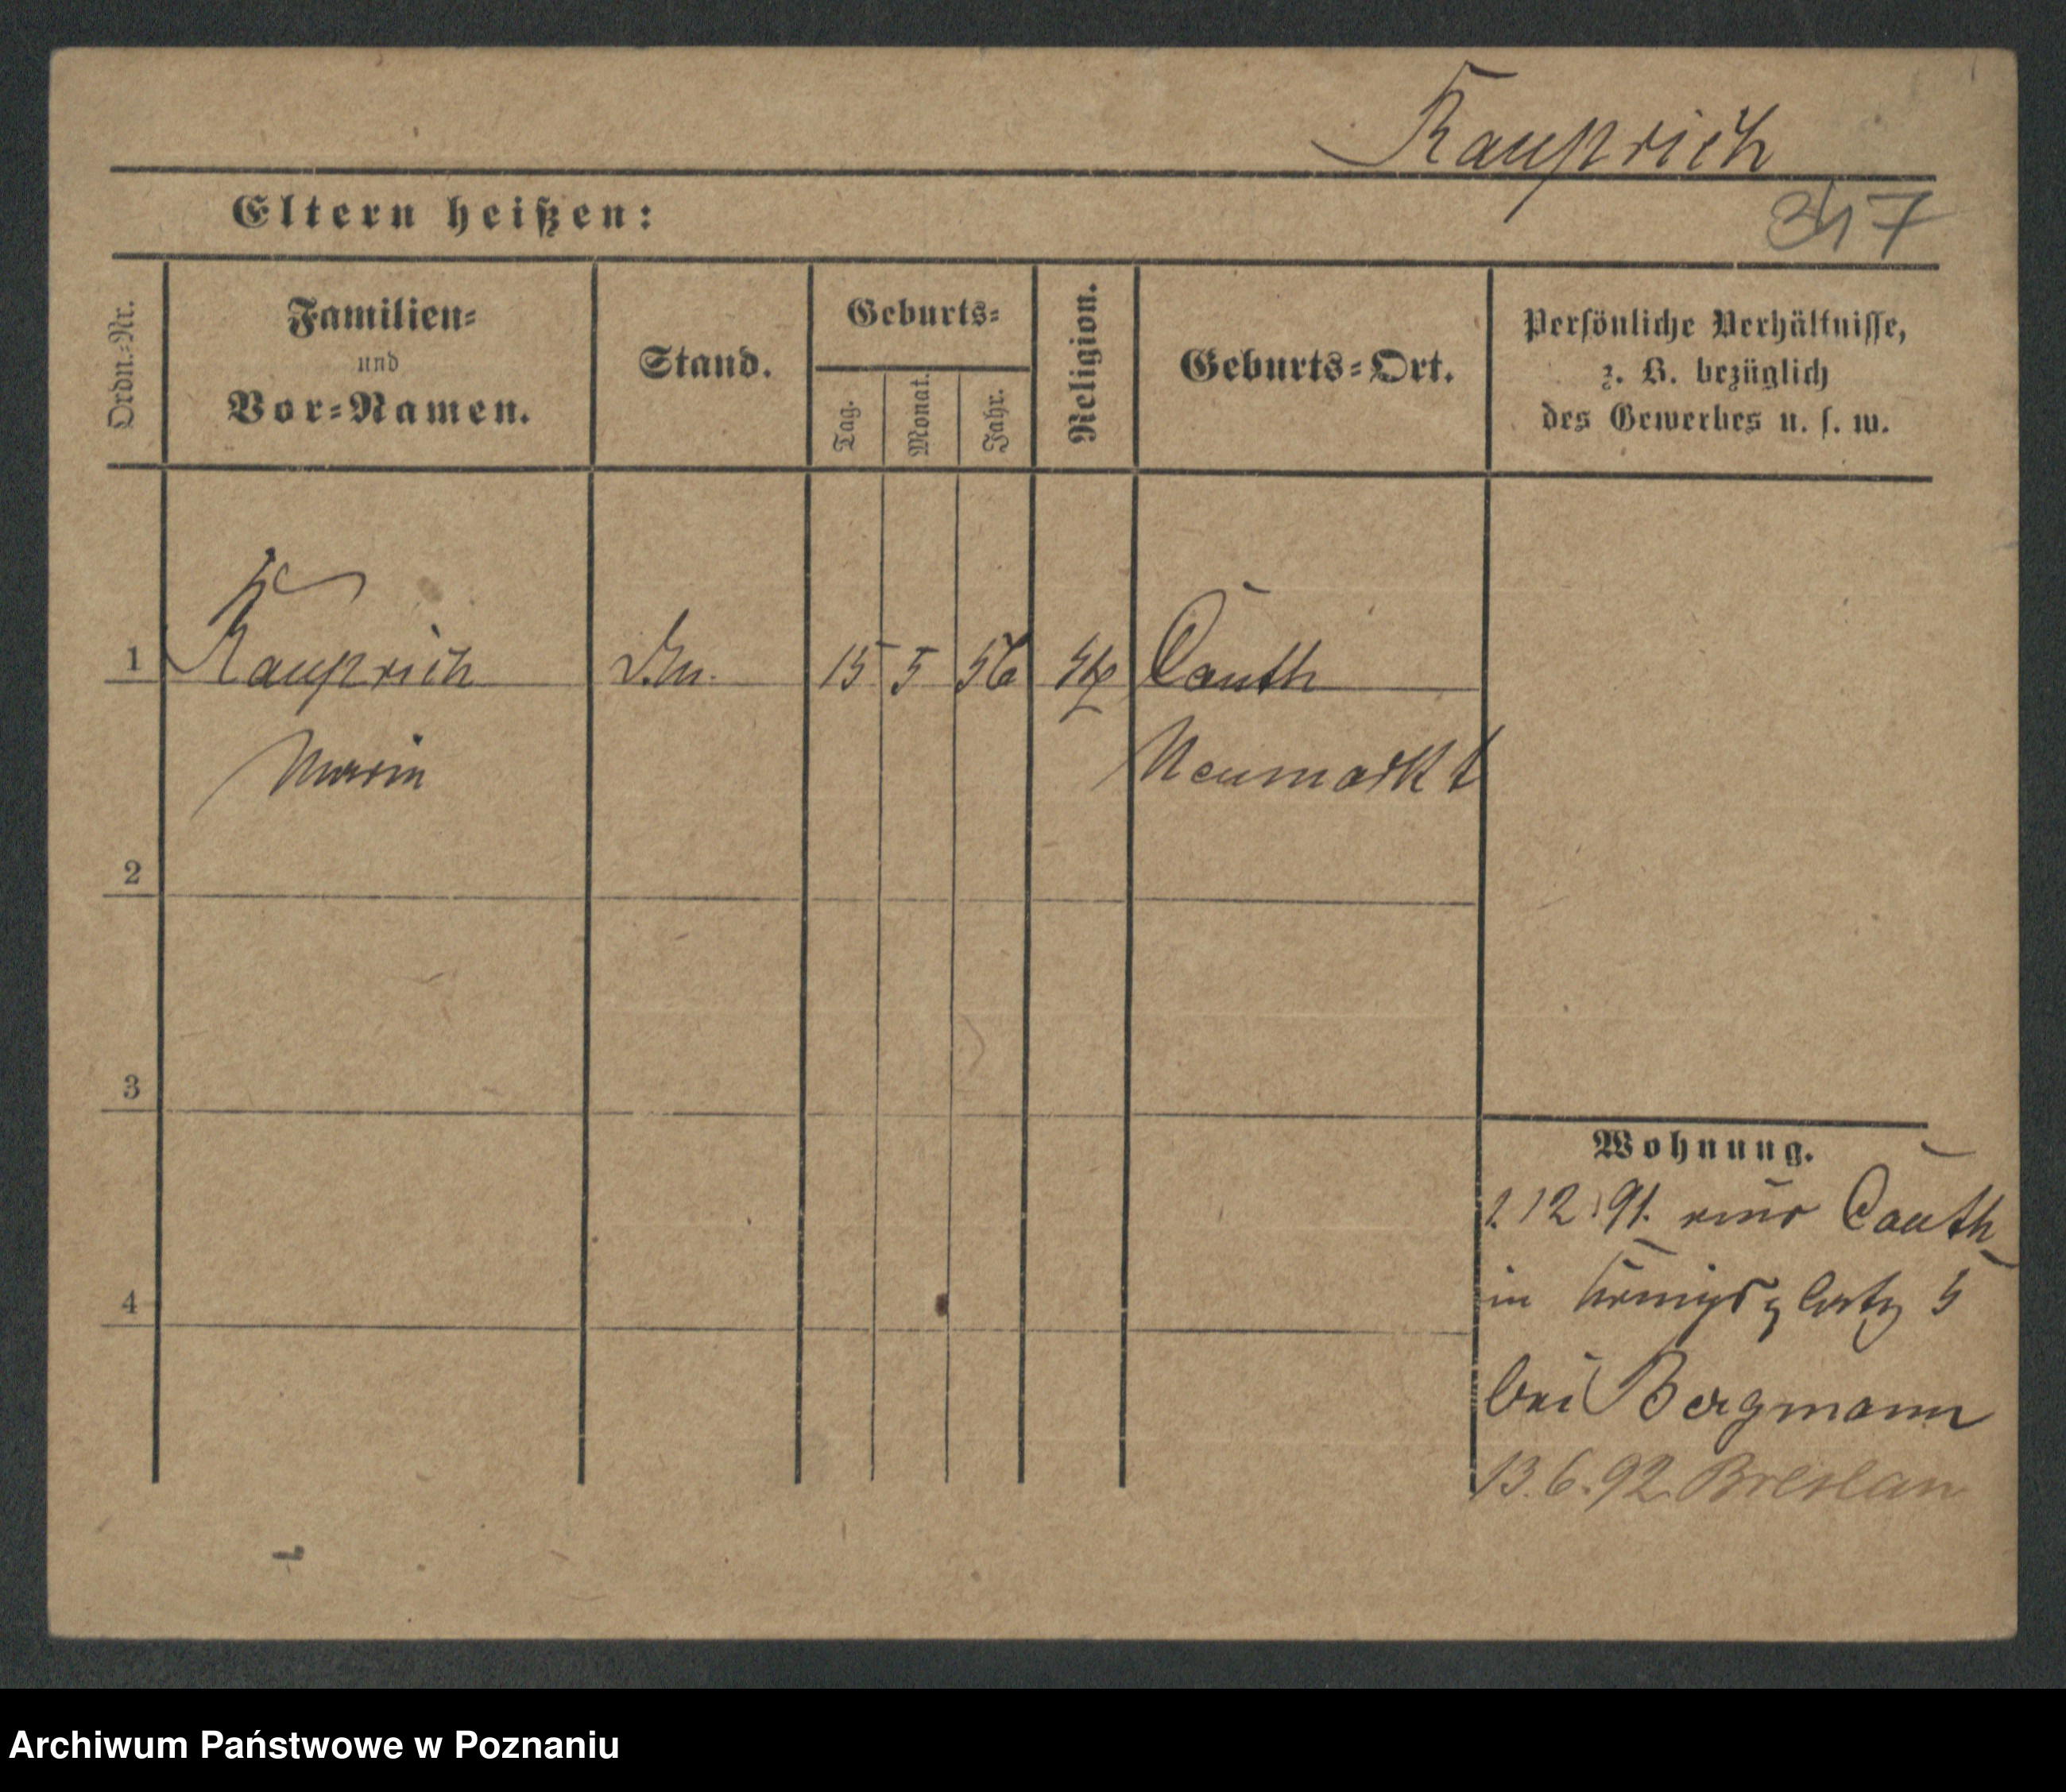 Kauprich
Eltern heißen:
347
Ordn.-Nr.
Familien-
und
Vor-Namen.
Stand.
Geburts-
Tag.
Monat.
Jahr.
Religion.
Geburts-Ort.
Persönliche Verhältnisse,
z. B. bezüglich
des Gewerbes u. s. w.
1 Kauprich 15 5 56 Canth
Marie Neumarkt
2
3
Wohnung.
1.12.91. aus Canth
4
in Königsplatz 5
bei Bergmann
13.6.92. Breslau
Archiwum Państwowe w Poznaniu